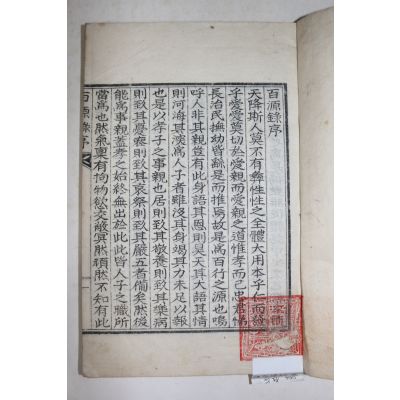 百源錄序
天降斯人莫不有彝性性之全體大用本乎仁而發
乎愛愛莫切於愛親而愛親之道惟孝而已忠君悌
長治民撫幼皆繇是而推焉故是爲百行之源也嗚
呼人非其親豈有此身語其恩則昊天其大語其情
則河海其深爲人子者雖沒其身竭其力未足以報
是以孝子之事親也居則致其敬養則致其樂病
則致其憂喪則致其哀祭則致其嚴五者備矣然後
能爲事親蓋孝之始終無出於此此皆人子之職所
當爲也然氣稟有拘物欲交蔽冥然頑然不知有此
百源錄序
一